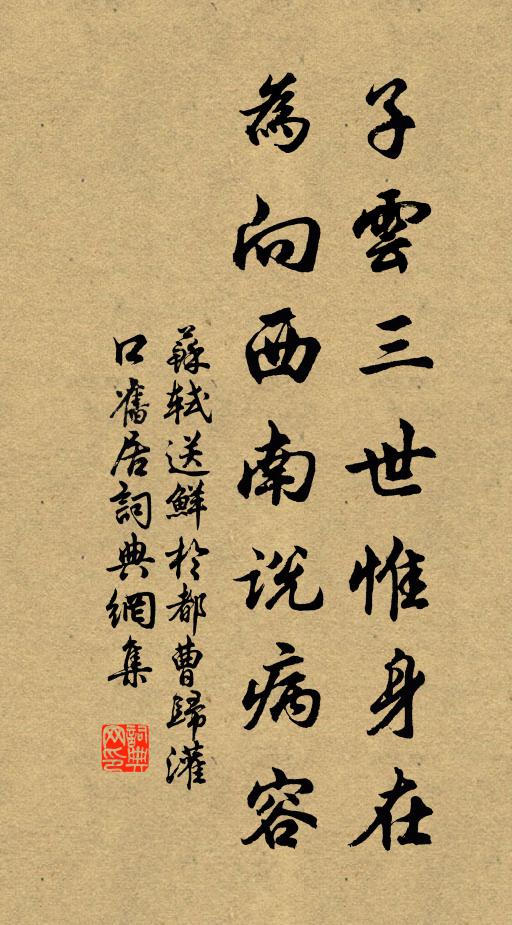 子雲三世惟身在
為向西南説病容
蘇軾送鮮於都曹歸灌
口舊居詞典網集
詞典网印